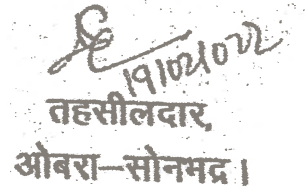 19/02/022
तहसीलदार,
ओबरा—सोनभद्र।